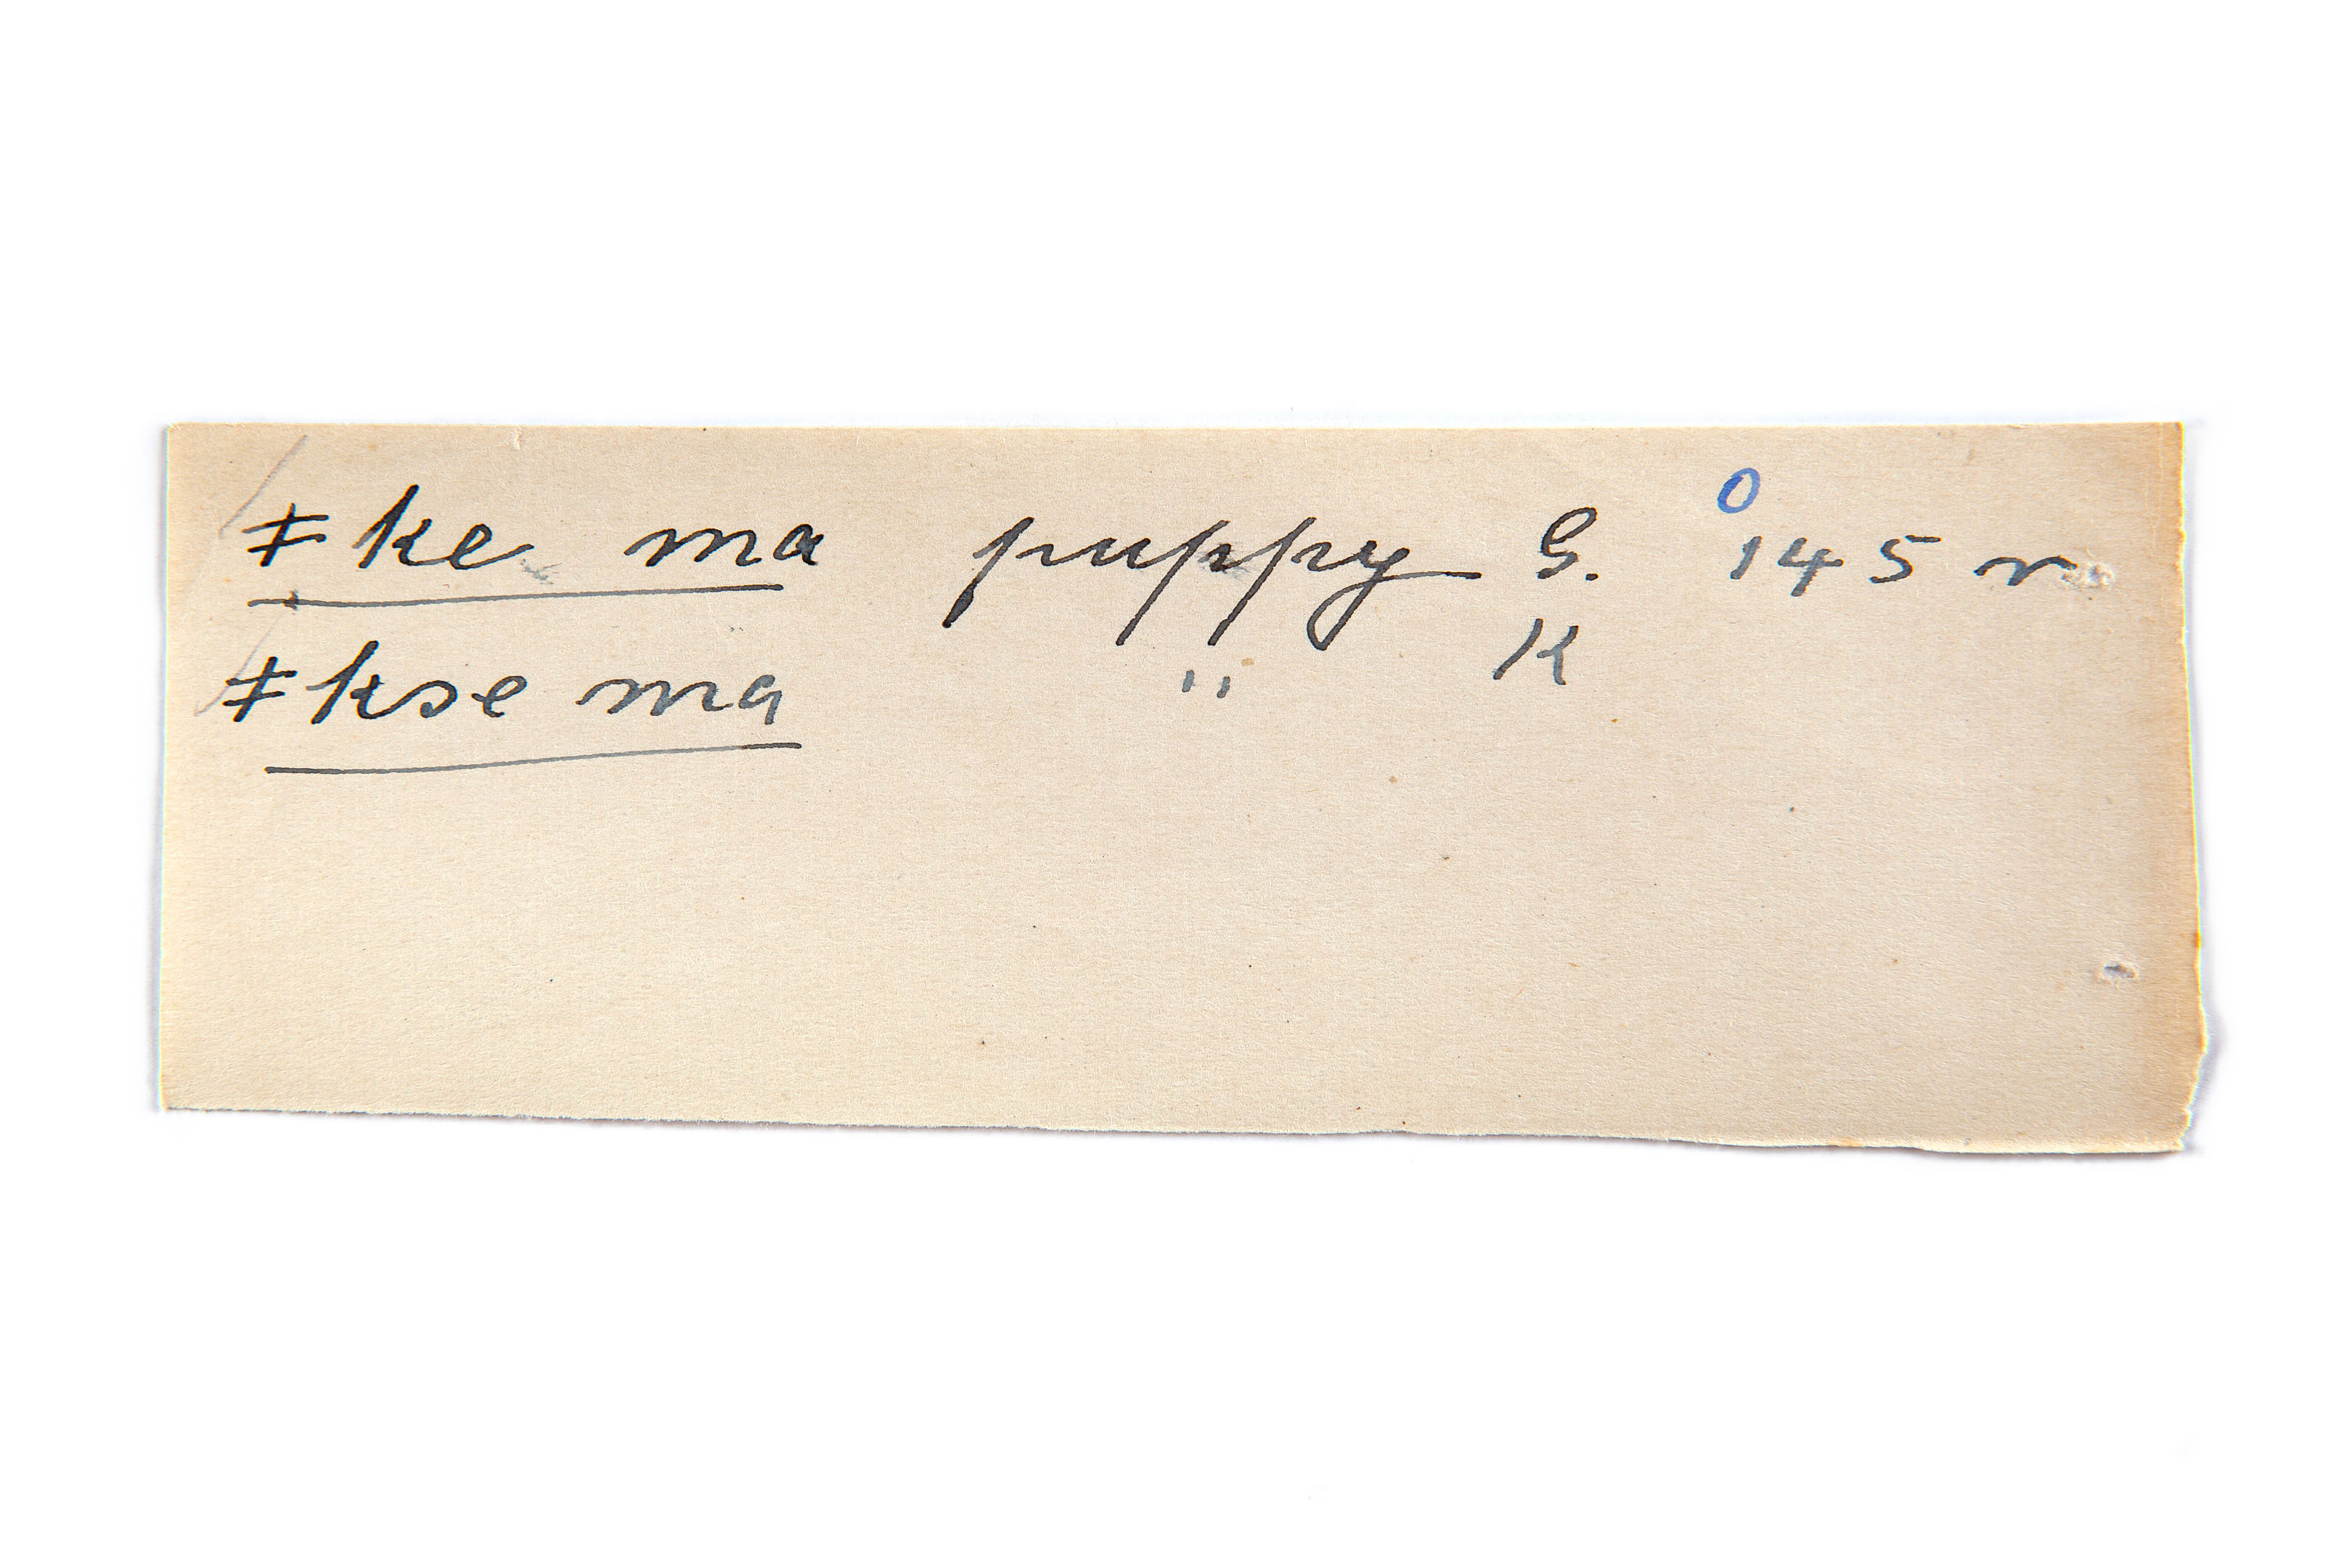 ǂke ma puppy G. 0 145 r
ǂkse ma " K